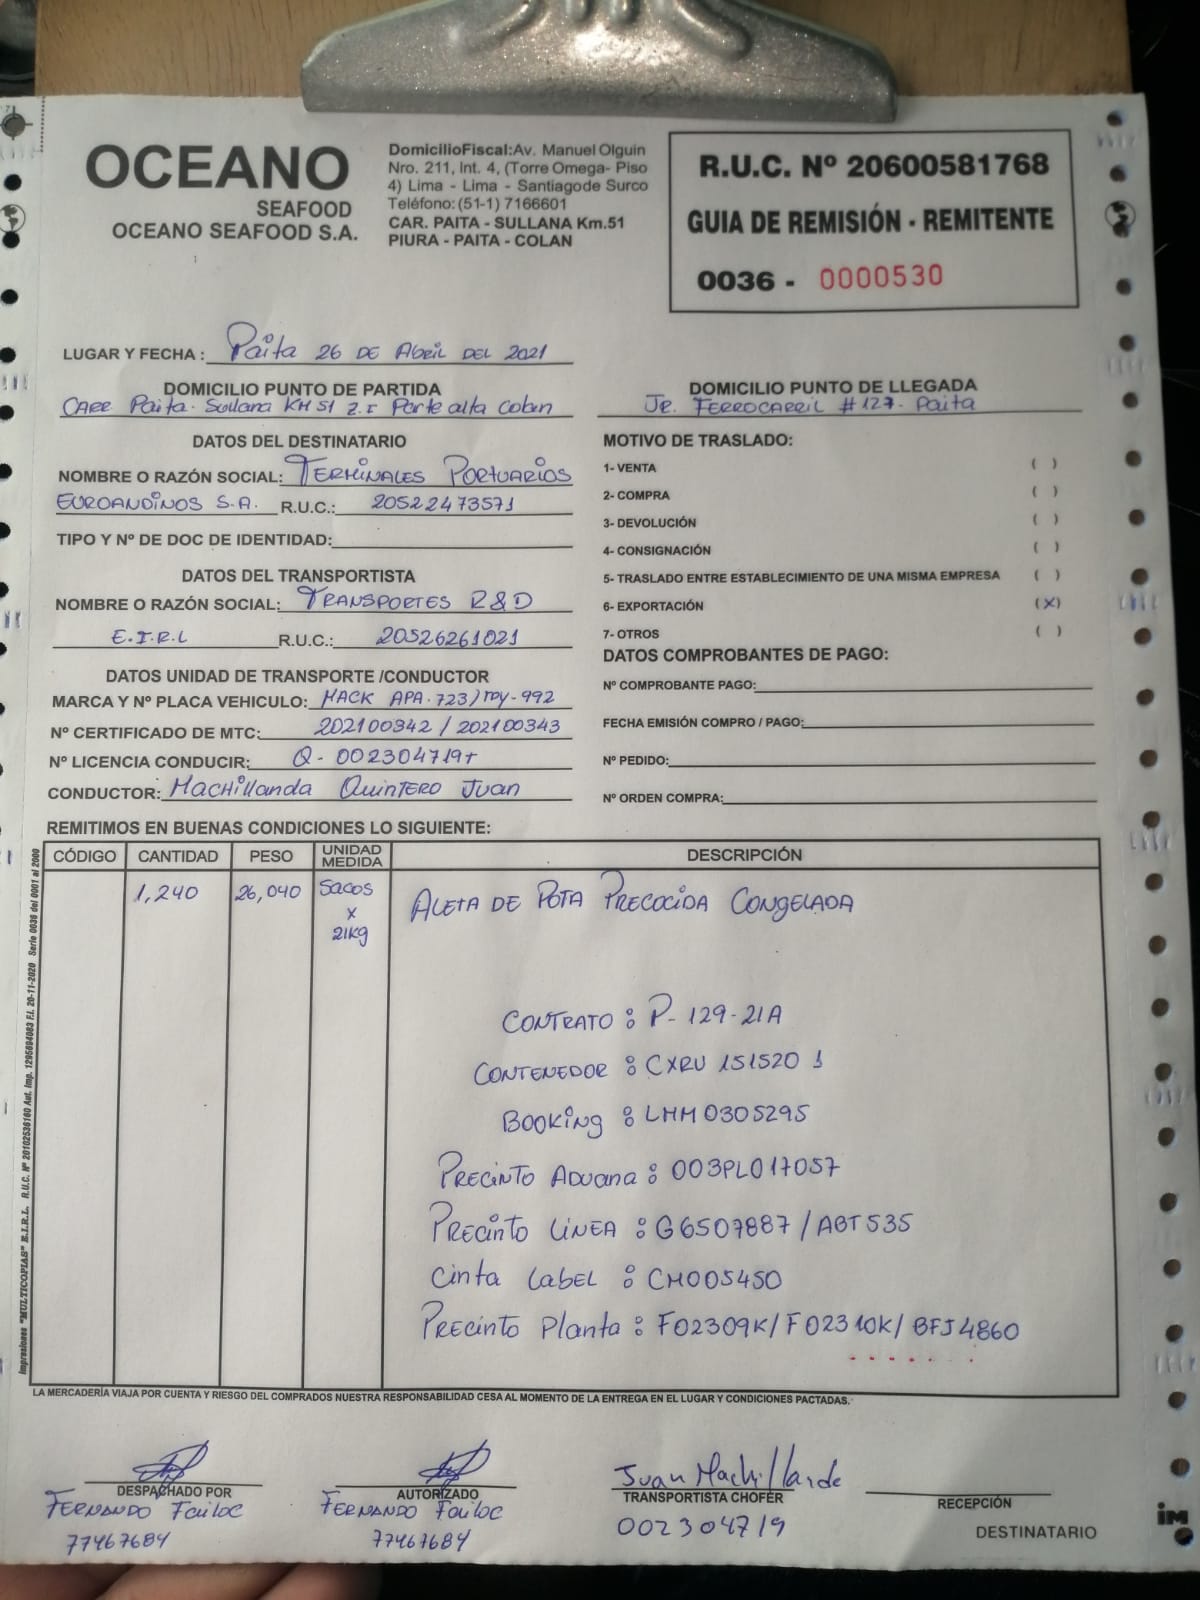 OCEANO
SEAFOOD
OCEANO SEAFOOD S.A.
DomicilioFiscal:Av. Manuel Olguin
Nro. 211, Int. 4, (Torre Omega- Piso
4) Lima - Lima - Santiagode Surco
Teléfono:(51-1) 7166601
CAR. PAITA - SULLANA Km.51
PIURA - PAITA - COLAN
R.U.C. Nº 20600581768
GUIA DE REMISIÓN - REMITENTE
0036 - 0000530
LUGAR Y FECHA : Paita 26 DE Abril DEL 2021
DOMICILIO PUNTO DE PARTIDA
CARR Paita-Sullana KM 51 Z.I Parte alta Colan
DOMICILIO PUNTO DE LLEGADA
JR. FERROCARRIL #127- Paita
DATOS DEL DESTINATARIO
NOMBRE O RAZÓN SOCIAL: TERMINALES PORTUARIOS
EUROANDINOS S.A. R.U.C.: 20522473571
TIPO Y Nº DE DOC DE IDENTIDAD:
DATOS DEL TRANSPORTISTA
NOMBRE O RAZÓN SOCIAL: TRANSPORTES R&D
E.I.R.L R.U.C.: 20526261021
DATOS UNIDAD DE TRANSPORTE /CONDUCTOR
MARCA Y Nº PLACA VEHICULO: MACK APA-723/TPY-992
Nº CERTIFICADO DE MTC: 202100342 / 202100343
Nº LICENCIA CONDUCIR: Q- 002304719
CONDUCTOR: Machillanda Quintero Juan
MOTIVO DE TRASLADO:
1- VENTA ( )
2- COMPRA ( )
3- DEVOLUCIÓN ( )
4- CONSIGNACIÓN ( )
5- TRASLADO ENTRE ESTABLECIMIENTO DE UNA MISMA EMPRESA ( )
6- EXPORTACIÓN (X)
7- OTROS ( )
DATOS COMPROBANTES DE PAGO:
Nº COMPROBANTE PAGO:
FECHA EMISIÓN COMPRO / PAGO:
Nº PEDIDO:
Nº ORDEN COMPRA:
REMITIMOS EN BUENAS CONDICIONES LO SIGUIENTE:
CÓDIGO CANTIDAD PESO UNIDAD MEDIDA DESCRIPCIÓN
1,240 26,040 Sacos x 21Kg ALETA DE POTA PRECOCIDA CONGELADA
CONTRATO : P- 129-21A
CONTENEDOR : CXRU 151520 1
BOOKING : LMM0305295
PRECINTO ADUANA : 003PL017057
PRECINTO LINEA : G6507887 / ABT535
Cinta LABEL : CM005450
PRECINTO Planta : F02309K/ F02310K/ BFJ4860
Impresiones "MULTICOPIAS" E.I.R.L. R.U.C. Nº 20102536160 Aut. Imp. 1295694083 F.I. 20-11-2020 Serie 0036 del 0001 al 2000
LA MERCADERÍA VIAJA POR CUENTA Y RIESGO DEL COMPRADOS NUESTRA RESPONSABILIDAD CESA AL MOMENTO DE LA ENTREGA EN EL LUGAR Y CONDICIONES PACTADAS.
DESPACHADO POR
FERNANDO Failoc
77467684
AUTORIZADO
FERNANDO Failoc
77467684
Juan Machillanda
TRANSPORTISTA CHOFER
002304719
RECEPCIÓN
DESTINATARIO
im